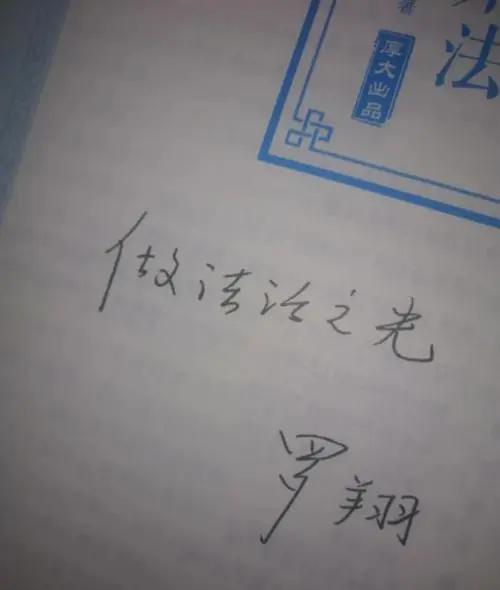 著
法
厚大出品
做法治之光
罗翔